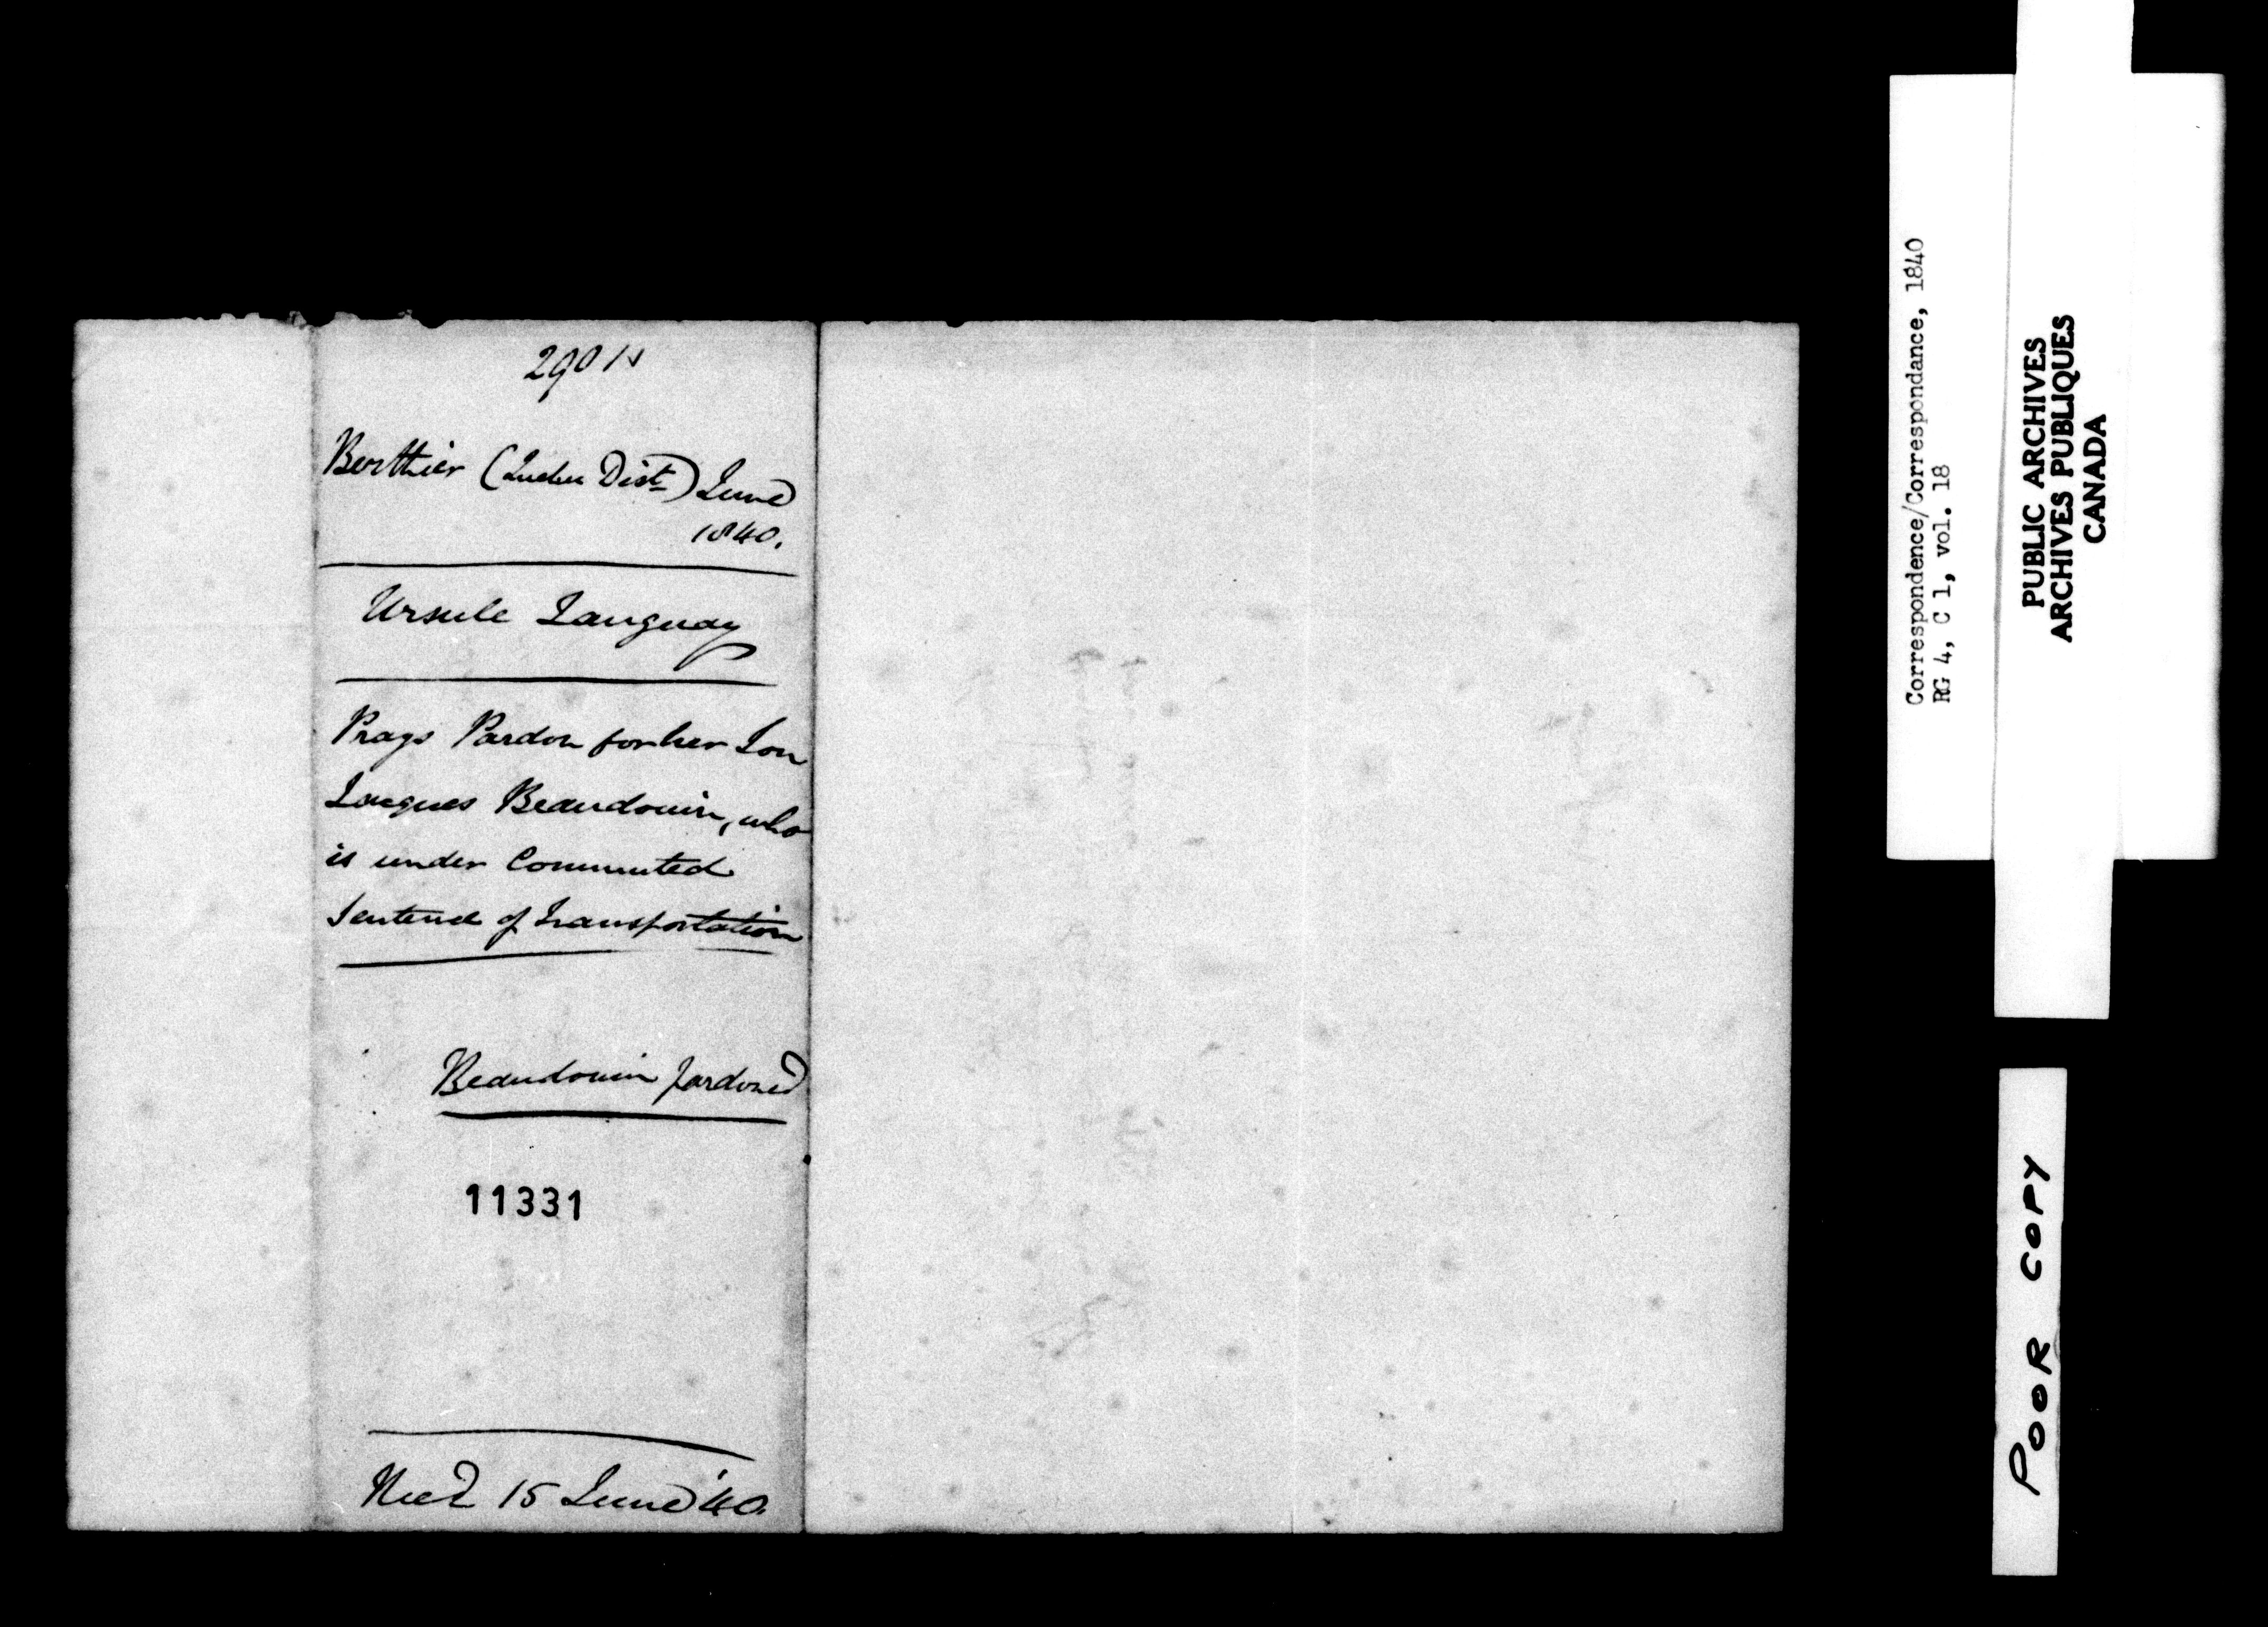 290
Berthier (Quebec Dist.) June
1840.
Ursule Languay
Prays Pardon for her Son
Jacques Beaudouin, who
is under Commuted
Sentence of Transportation
Beaudouin pardoned
11331
Recd 15 June '40.
Correspondence/Correspondance, 1840
RG 4, C 1, vol. 18
PUBLIC ARCHIVES
ARCHIVES PUBLIQUES
CANADA
POOR COPY